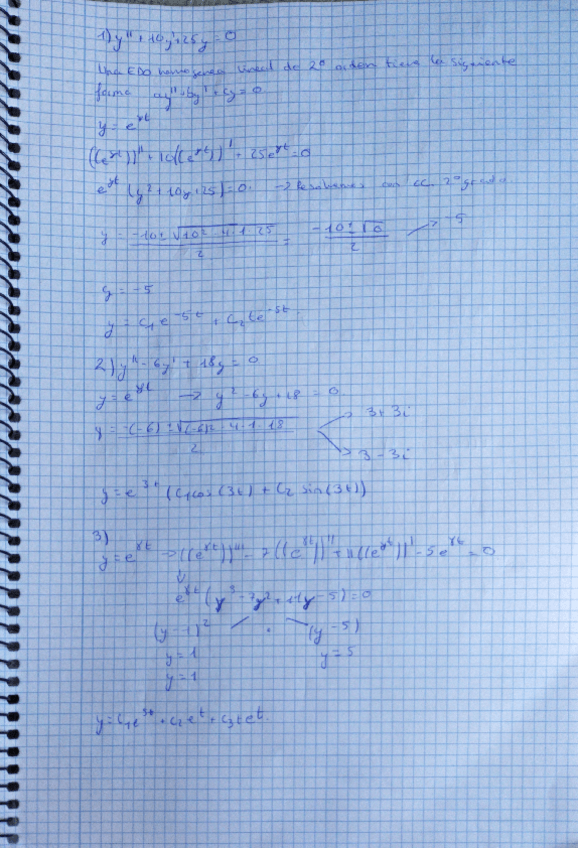 1) y'' + 10y' + 25y = 0
Una EDO homogenea lineal de 2º orden tiene la siguiente
forma ay'' + by' + cy = 0
y = e^γt
((e^γt))'' + 10((e^γt))' + 25e^γt = 0
e^γt (γ² + 10γ + 25) = 0 → Resolvemos con ec. 2º grado.
γ = (-10 ± √(10² - 4·1·25))/2 = (-10 ± √0)/2 → -5
γ = -5
y = c₁e^-5t + c₂te^-5t
2) y'' - 6y' + 18y = 0
y = e^γt → γ² - 6γ + 18 = 0
γ = (-(-6) ± √((-6)² - 4·1·18))/2
→ 3 + 3i
→ 3 - 3i
y = e^3t (c₁cos(3t) + c₂ sin(3t))
3)
y = e^γt → ((e^γt))''' - 7((e^γt))'' + 11((e^γt))' - 5e^γt = 0
↓
e^γt (γ³ - 7γ² + 11γ - 5) = 0
(γ - 1)² (γ - 5)
γ = 1 γ = 5
γ = 1
y = c₁e^5t + c₂e^t + c₃te^t.